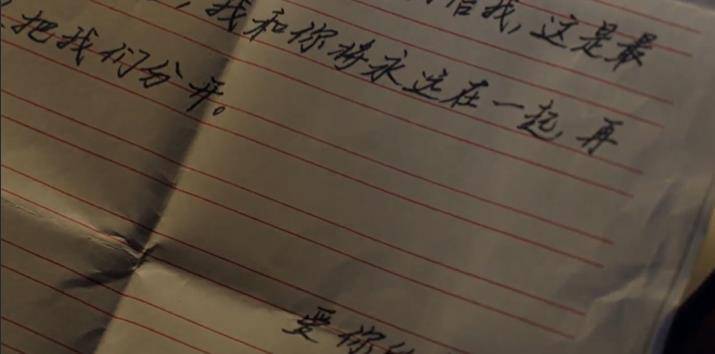 信我，这是最
，我和你将永远在一起，再
把我们分开。
爱你